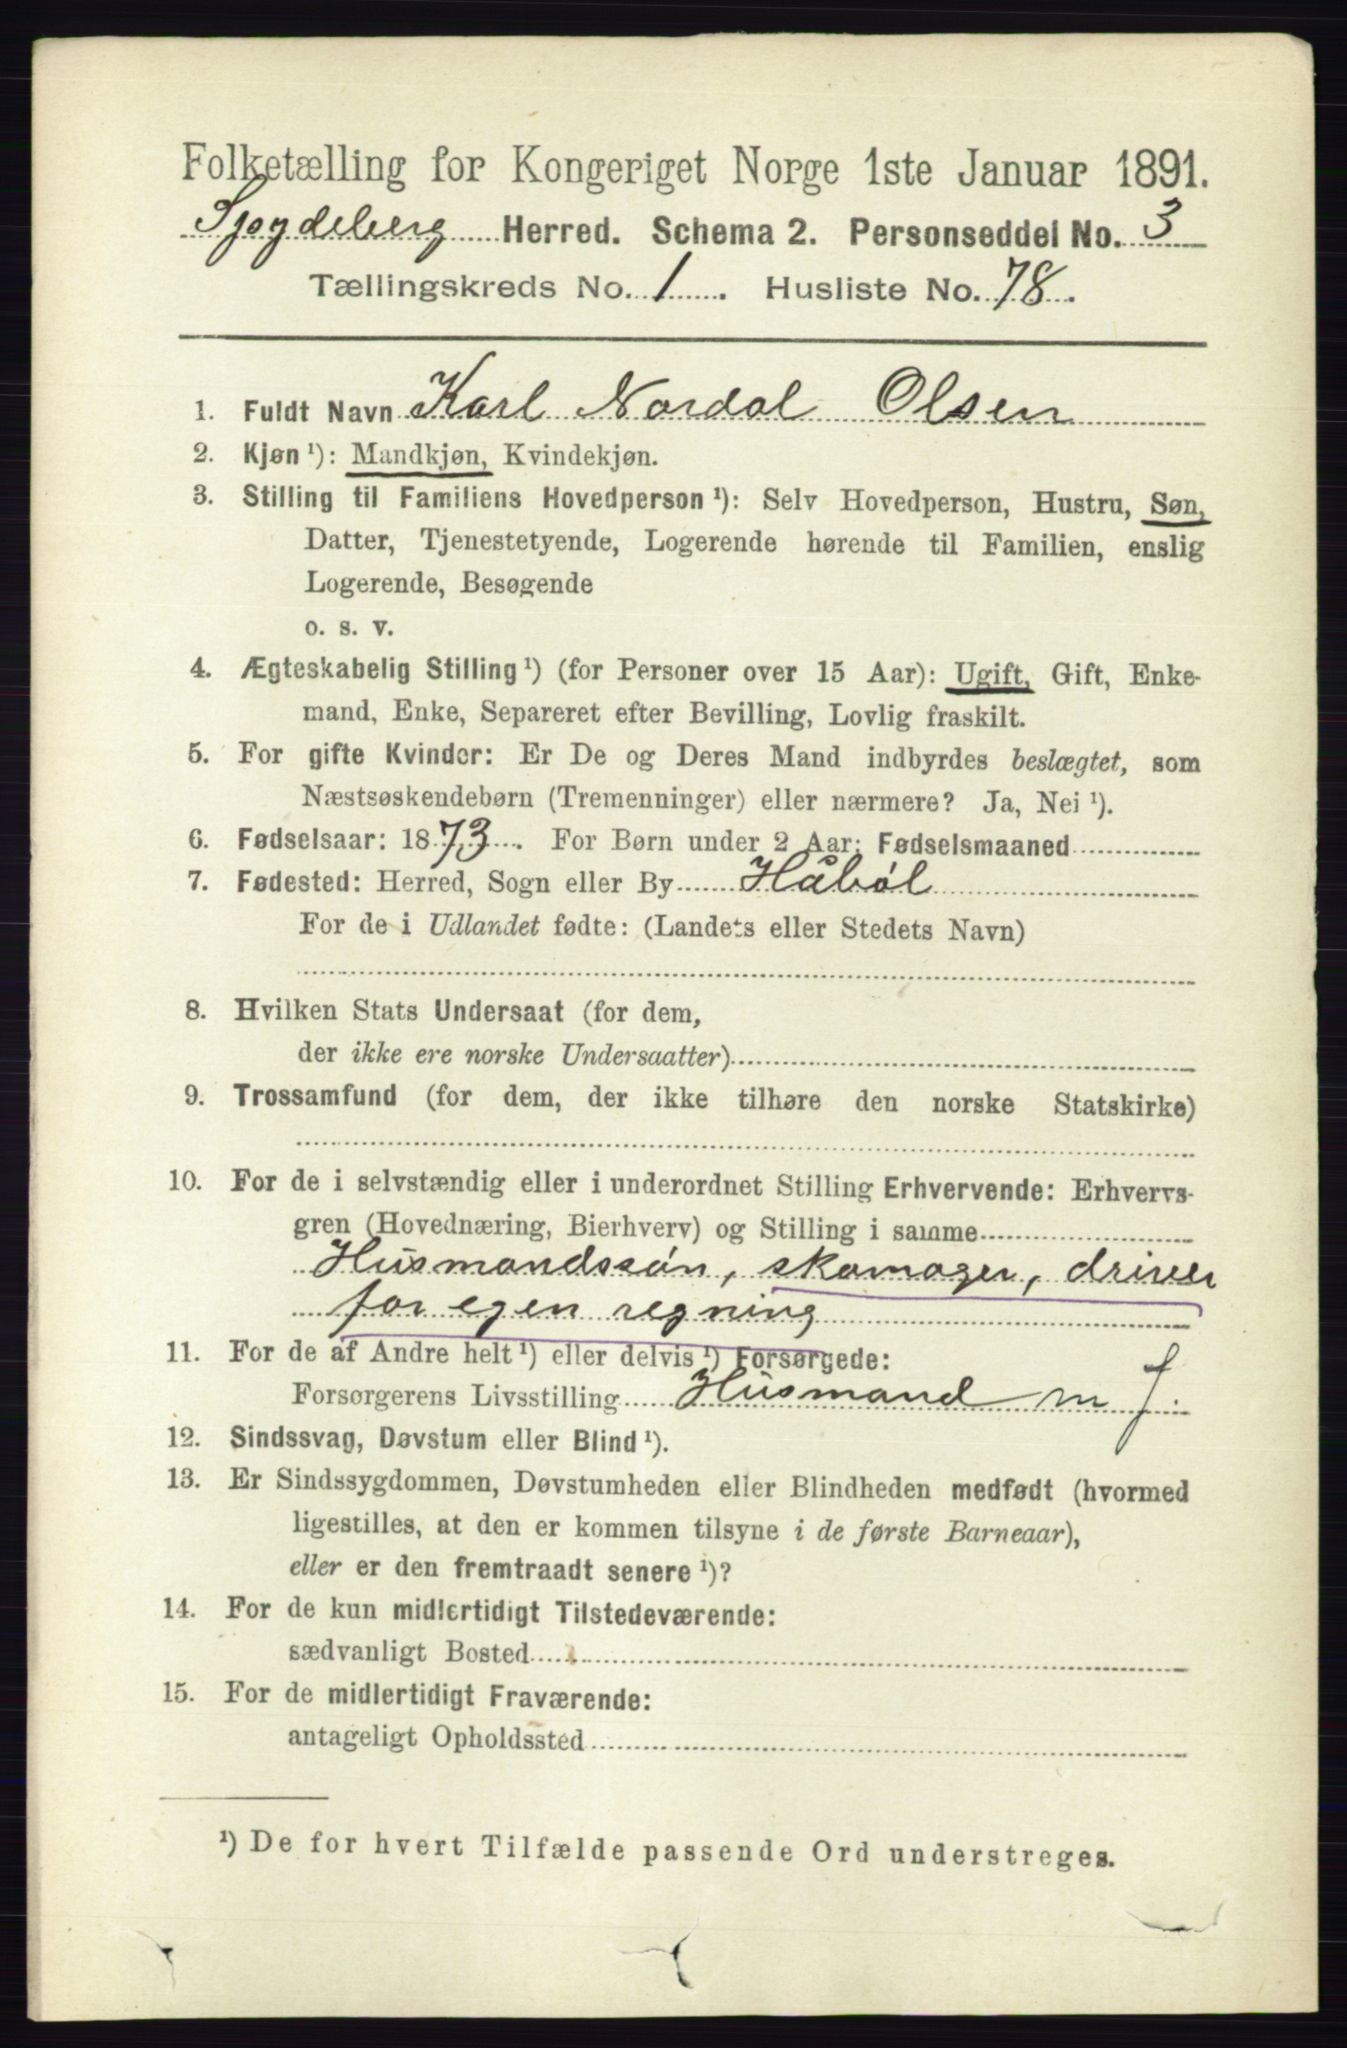 Folketælling for Kongeriget Norge 1ste Januar 1891.
Spydeberg Herred. Schema 2. Personseddel No. 3
Tællingskreds No. 1. Husliste No. 78.
1. Fuldt Navn Karl Nordal Olsen
2. Kjøn ¹): Mandkjøn, Kvindekjøn.
3. Stilling til Familiens Hovedperson ¹): Selv Hovedperson, Hustru, Søn,
Datter, Tjenestetyende, Logerende hørende til Familien, enslig
Logerende, Besøgende
o. s. v.
4. Ægteskabelig Stilling ¹) (for Personer over 15 Aar): Ugift, Gift, Enke-
mand, Enke, Separeret efter Bevilling, Lovlig fraskilt.
5. For gifte Kvinder: Er De og Deres Mand indbyrdes beslægtet, som
Næstsøskendebørn (Tremenninger) eller nærmere? Ja, Nei ¹).
6. Fødselsaar: 1873. For Børn under 2 Aar: Fødselsmaaned
7. Fødested: Herred, Sogn eller By Håbøl
For de i Udlandet fødte: (Landets eller Stedets Navn)
8. Hvilken Stats Undersaat (for dem,
der ikke ere norske Undersaatter)
9. Trossamfund (for dem, der ikke tilhøre den norske Statskirke)
10. For de i selvstændig eller i underordnet Stilling Erhvervende: Erhvervs-
gren (Hovednæring, Bierhverv) og Stilling i samme
Husmandssøn, skomager, driver
for egen regning
11. For de af Andre helt ¹) eller delvis ¹) Forsørgede:
Forsørgerens Livsstilling Husmand m J.
12. Sindssvag, Døvstum eller Blind ¹).
13. Er Sindssygdommen, Døvstumheden eller Blindheden medfødt (hvormed
ligestilles, at den er kommen tilsyne i de første Barneaar),
eller er den fremtraadt senere ¹)?
14. For de kun midlertidigt Tilstedeværende:
sædvanligt Bosted
15. For de midlertidigt Fraværende:
antageligt Opholdssted
¹) De for hvert Tilfælde passende Ord understreges.